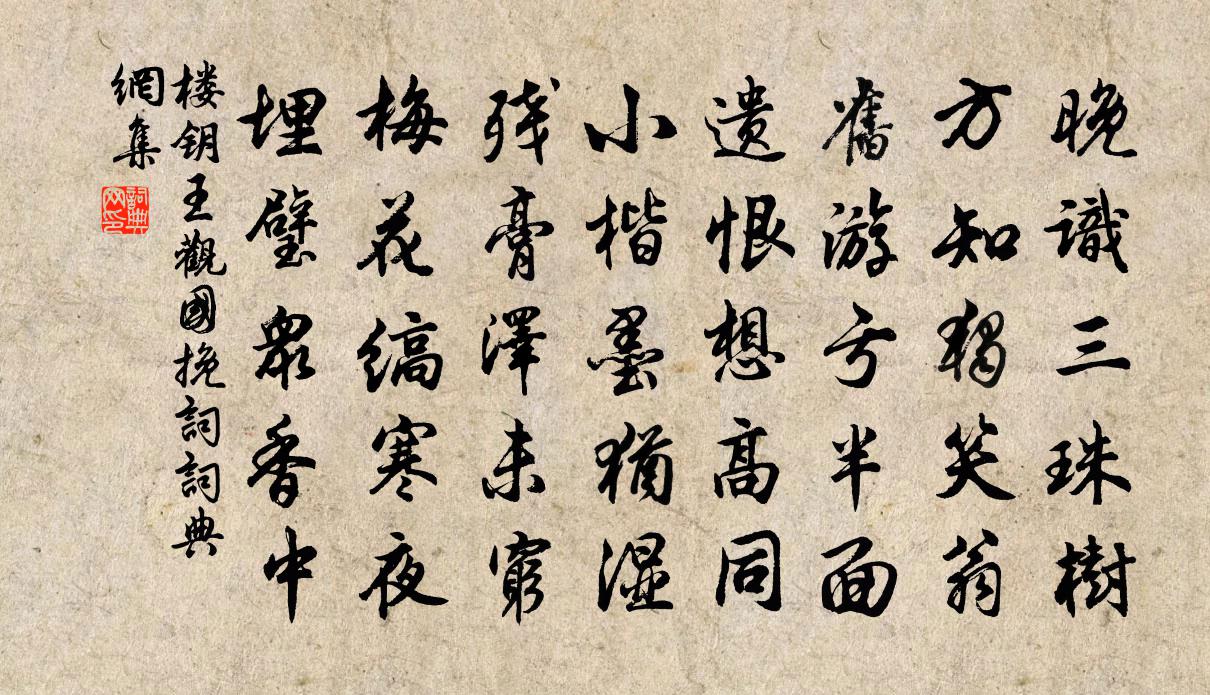 晚識三珠樹
方知獨笑翁
舊游亏半面
遗恨想高同
小楷墨猶湿
残膏澤未窮
梅花縞寒夜
埋璧眾香中
楼钥王觀國挽詞詞典
網集
詞典
网印